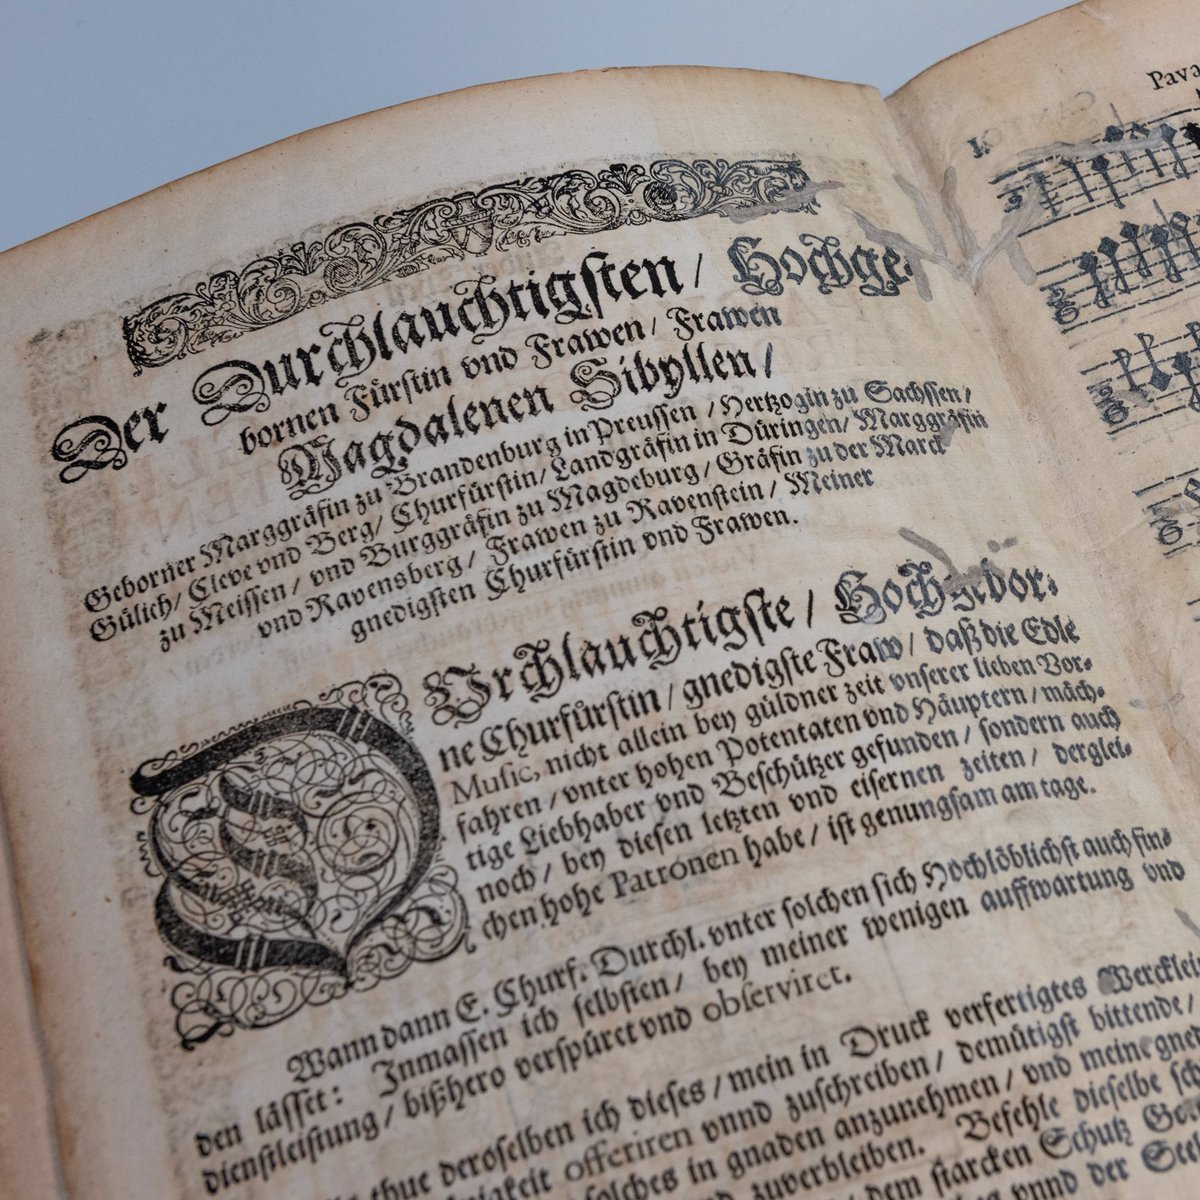 Der Durchlauchtigsten / Hochge-
bornen Fürstin vnd Frawen / Frawen
Magdalenen Sibyllen /
Geborner Marggräfin zu Brandenburg in Preussen / Hertzogin zu Sachssen /
Gülich / Cleve vnd Berg / Churfürstin / Landgräfin in Düringen / Marggräfin
zu Meissen / vnd Burggräfin zu Magdeburg / Gräfin zu der Marck
vnd Ravensberg / Frawen zu Ravenstein / Meiner
gnedigsten Churfürstin vnd Frawen.
DVrchlauchtigste / Hochgebor-
ne Churfürstin / gnedigste Fraw / daß die Edle
Music, nicht allein bey güldner zeit vnserer lieben Vor-
fahren / vnter hohen Potentaten vnd Häuptern / mäch-
tige Liebhaber vnd Beschützer gefunden / sondern auch
noch / bey diesen letzten vnd eisernen zeiten / derglei-
chen hohe Patronen habe / ist genungsam am tage.
Wann dann E. Churf. Durchl. vnter solchen sich Hochlöblichst auch fin-
den lässet: Inmassen ich selbsten / bey meiner wenigen auffwartung vnd
dienstleistung / bißhero verspüret vnd observiret.
thue deroselben ich dieses / mein in Druck verfertigtes Wercklein
offeriren vnnd zuschreiben / demütigst bittende /
solches in gnaden anzunehmen / vnd meine
zuverbleiben. Befehle dieselbe
dem starcken Schutz
vnnd der
Pava